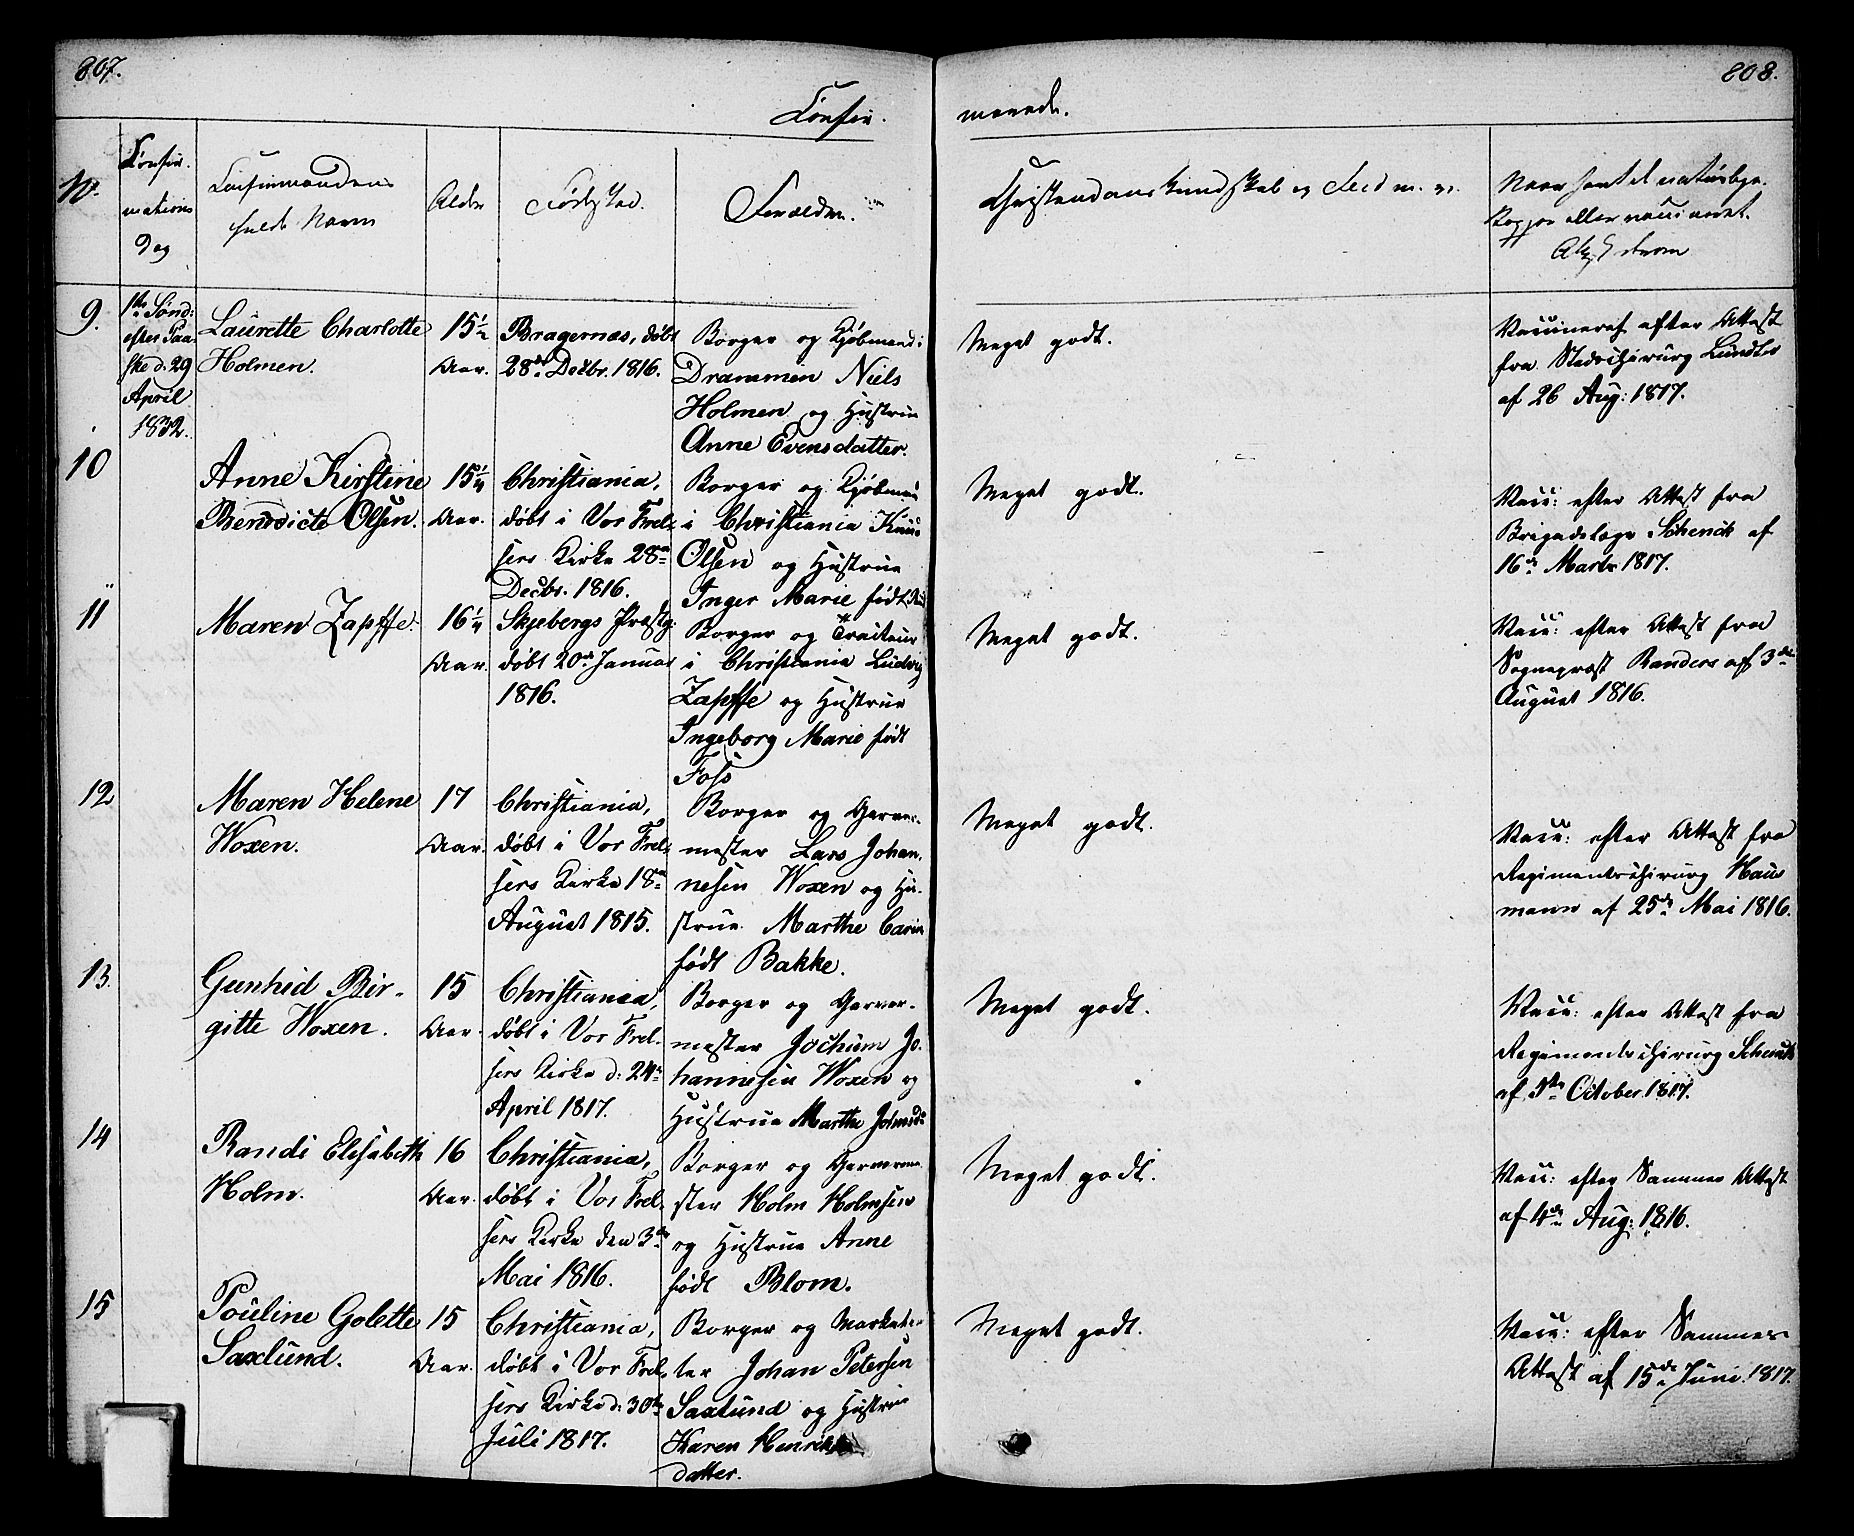 807.
808.
Confir-
merede.
No.
Confir-
mations
Dag
Confirmandens
fulde Navn
Alder
Fødested.
Forældre.
Christendomskundskab og Flid m. v.
Naar havt de naturlige
Kopper eller vaccineret.
9.
1ste Sønd:
efter Paa-
ske d. 29
April
1832.
Laurette Charlotte
Holmen.
15 1/2
Aar.
Bragernæs, døbt
28de Decbr. 1816.
Borger og Kjøbmand i
Drammen Niels
Holmen og Hustrue
Anne Evensdatter.
Meget godt.
Vaccineret efter Attest
fra Stadschirurg Lundtz
af 26 Aug: 1817.
10
Anne Kirstine
Benedicte Olsen.
15 1/4
Aar.
Christiania,
døbt i Vor Frel-
sers Kirke 28de
Decbr. 1816.
Borger og Kjøbman
i Christiania Knud
Olsen og Hustrue
Inger Marie født
Meget godt.
Vacc: efter Attest fra
Brigadelæge Schenck af
16de Marts 1817.
11
Maren Zapffe.
16 1/4
Aar.
Skjebergs Præstg:
døbt 20de Januar
1816.
Borger og Traiteur
i Christiania Ludvig
Zapffe og Hustrue
Ingeborg Marie født
Foss
Meget godt.
Vacc: efter Attest fra
Sognepræst Randers af 3de
August 1816.
12
Maren Helene
Woxen.
17
Aar.
Christiania,
døbt i Vor Frel-
sers Kirke 18de
August 1815.
Borger og Garver-
mester Lars Johan-
nesen Woxen og Hu-
strue Marthe Carin
født Bakke.
Meget godt.
Vacc: efter Attest fra
Regimentschirurg Haus
mann af 25de Mai 1816.
13.
Gunhild Bir-
gitte Woxen.
15
Aar.
Christiania,
døbt i Vor Frel-
sers Kirke d: 24de
April 1817.
Borger og Garver-
mester Jochum Jo-
hannesen Woxen og
Hustrue Marthe Johnsd:
Meget godt.
Vacc: efter Attest fra
Regimentschirurg Schenck
af 5te October 1817.
14
Randi Elisabeth
Holm.
16
Aar.
Christiania,
døbt i Vor Frel-
sers Kirke den 3de
Mai 1816.
Borger og Garverme-
ster Holm Holmsen
og Hustrue Anne
født Blom.
Meget godt.
Vacc: efter Sammes Attest
af 4de Aug: 1816.
15
Pouline Golette
Saxlund.
15
Aar.
Christiania,
døbt i Vor Frel-
sers Kirke d: 30te
Juli 1817.
Borger og Marketen-
ter Johan Petersen
Saxlund og Hustrue
Karen Henriks
datter.
Meget godt.
Vacc: efter Sammes
Attest af 15de Juni 1817.